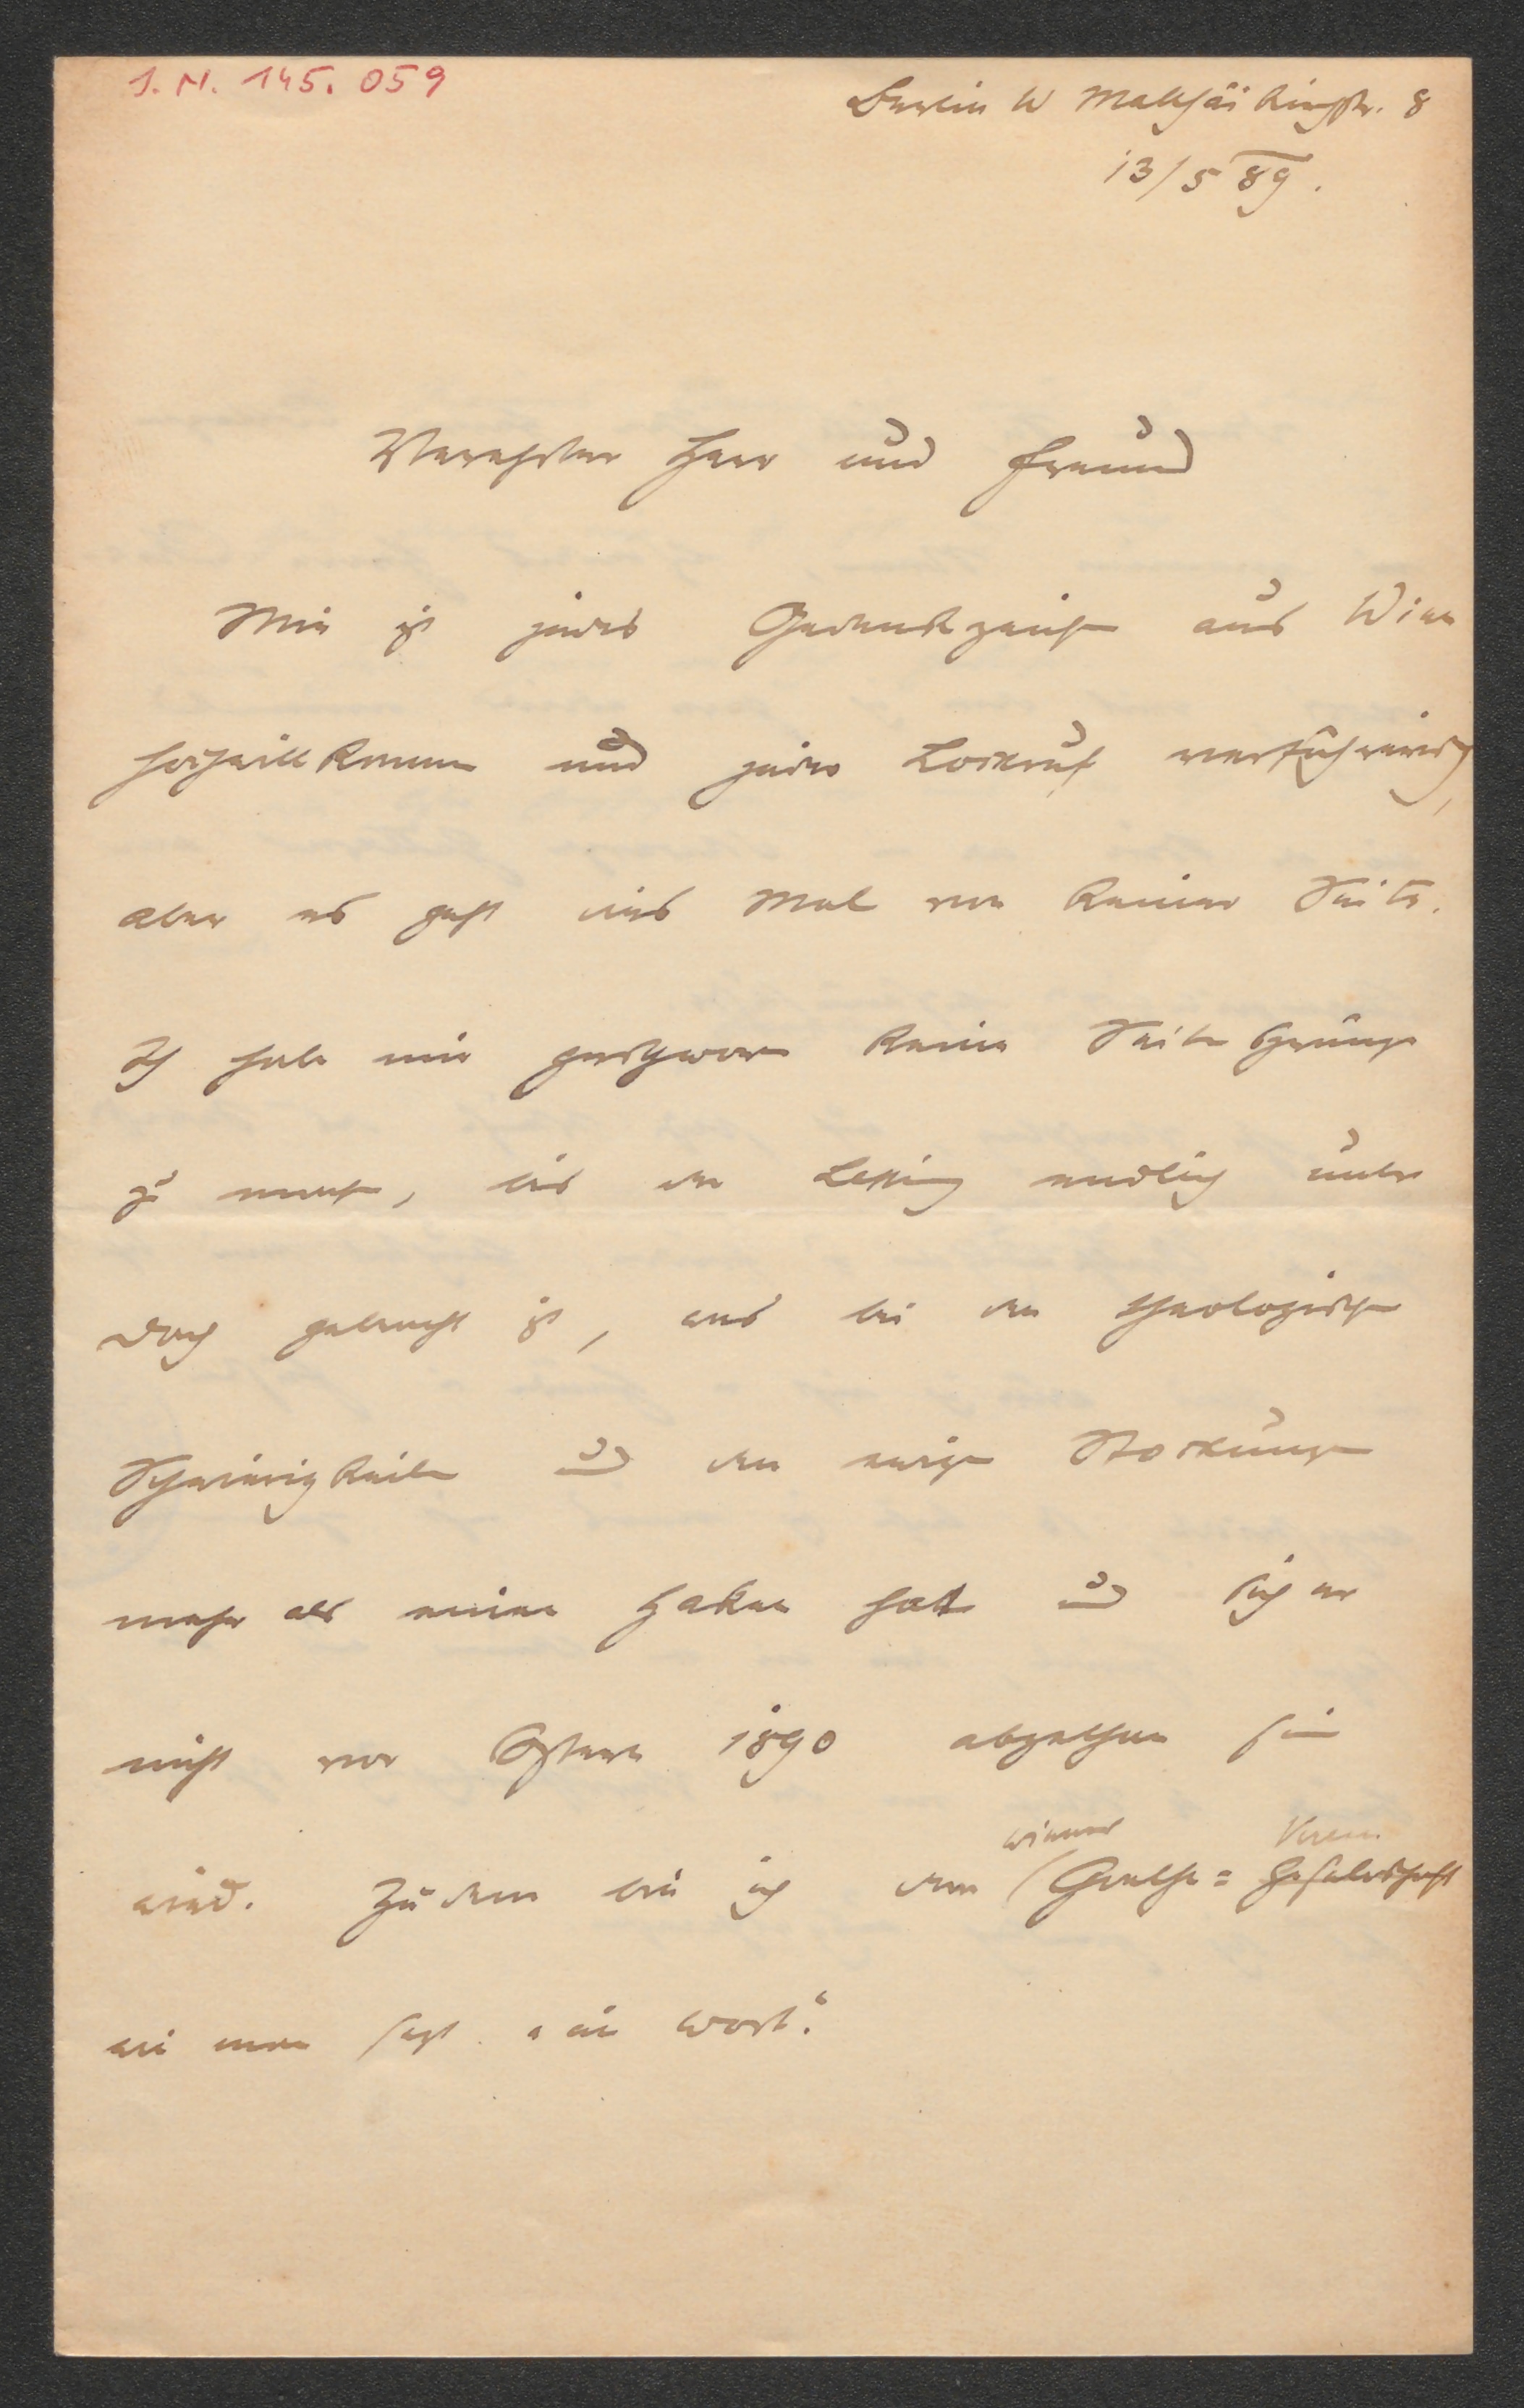 I. N. 145.059
Berlin W Matthäi Kirchstr. 8
13/5 89.
Verehrter Herr und Freund
Mir ist jedes Gedenkzeichen aus Wien
hochwillkommen und jeder Lockruf verführerisch,
aber es geht dies Mal von keiner Seite.
Ich habe mir geschworen keine Seitensprünge
zu machen, bis der Lessing endlich unter
Dach gebracht ist, was bei den theologischen
Schwierigkeiten und den ewigen Stockungen
mehr als einen Haken hat und sicher
nicht vor Ostern 1890 abgethan sein
wird. Zudem bin ich dem Wiener Goethe= Verein Gesellschaft
wie man sagt „im Wort."